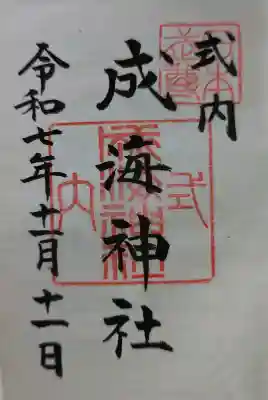 式内
成海神社
令和七年十一月十一日
式内